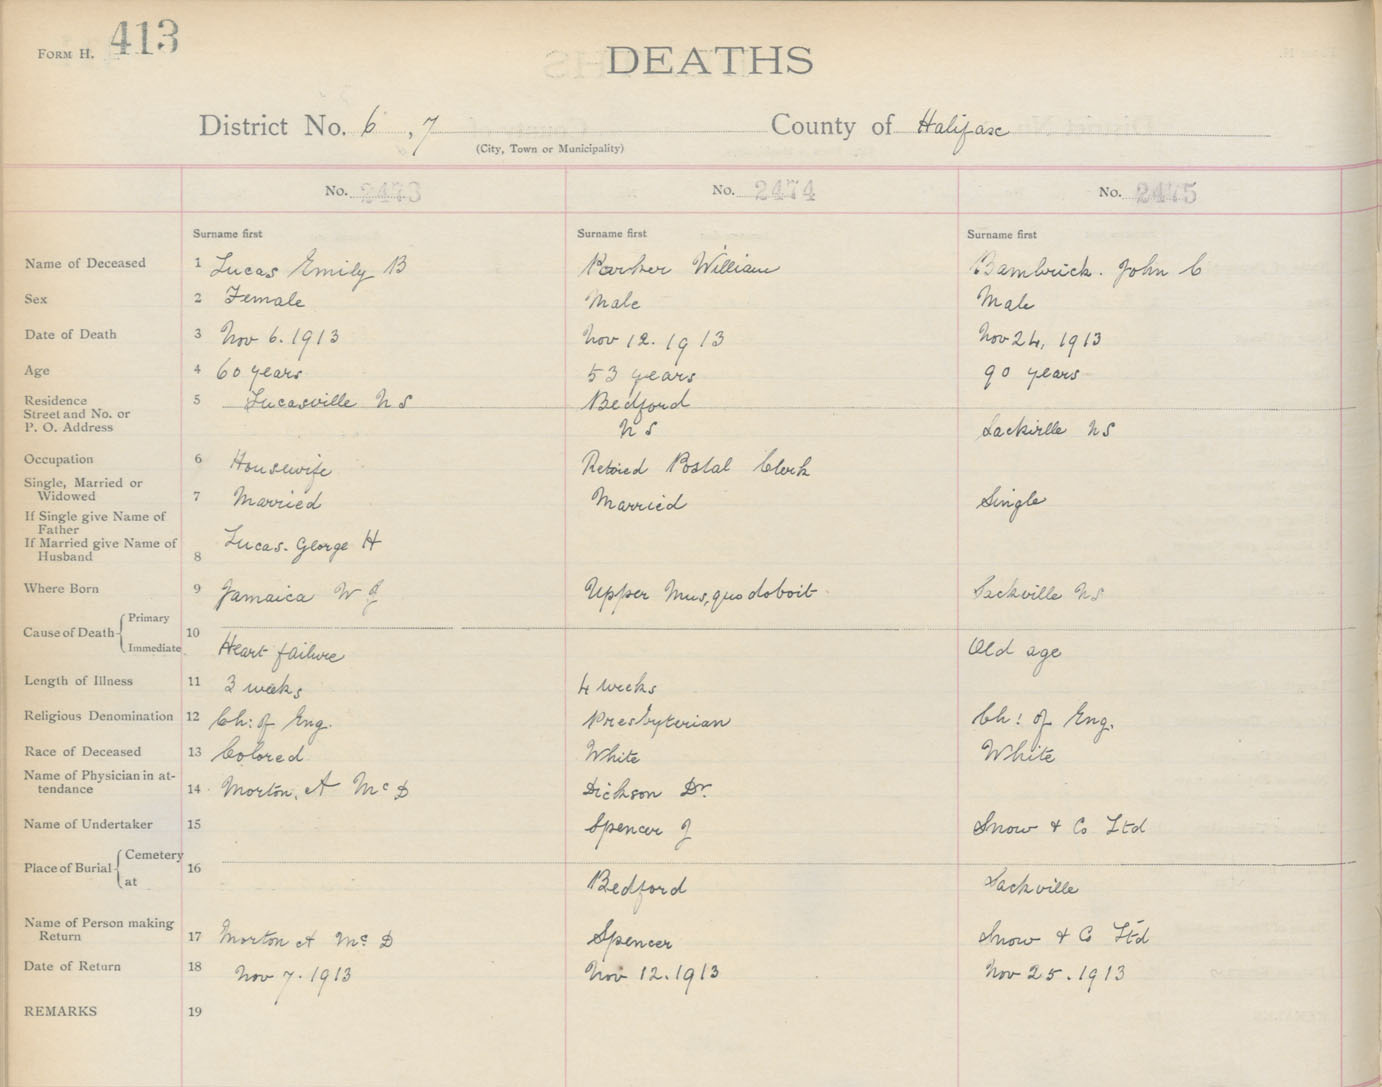 FORM H. 413
DEATHS
District No. 6, 7 County of Halifax
(City, Town or Municipality)
No. 2473 No. 2474 No. 2475
Surname first Surname first Surname first
Name of Deceased 1 Lucas Emily B Parker William Bambrick. John C
Sex 2 Female Male Male
Date of Death 3 Nov 6. 1913 Nov 12. 1913 Nov 24, 1913
Age 4 60 years 53 years 90 years
Residence 5 Lucasville NS Bedford
Street and No. or
P. O. Address NS Sackville NS
Occupation 6 Housewife Retired Postal Clerk
Single, Married or
Widowed 7 Married Married Single
If Single give Name of
Father
If Married give Name of Lucas. George H
Husband 8
Where Born 9 Jamaica W I Upper Musquodoboit Sackville NS
Cause of Death Primary
10
Immediate Heart failure Old age
Length of Illness 11 3 weeks 4 weeks
Religious Denomination 12 Ch: of Eng. Presbyterian Ch: of Eng.
Race of Deceased 13 Colored White White
Name of Physician in at-
tendance 14 Morton, A McD Dickson Dr.
Name of Undertaker 15 Spencer J Snow & Co Ltd
Place of Burial Cemetery
16
at Bedford Sackville
Name of Person making
Return 17 Morton A McD Spencer Snow & Co Ltd
Date of Return 18 Nov 7. 1913 Nov 12. 1913 Nov 25. 1913
REMARKS 19